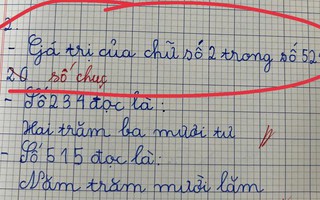 2.
- Gá trị của chữ số 2 trong số 52
20 số chục
- Số 234 đọc là:
Hai trăm ba mươi tư
- Số 515 đọc là:
Năm trăm mười lăm